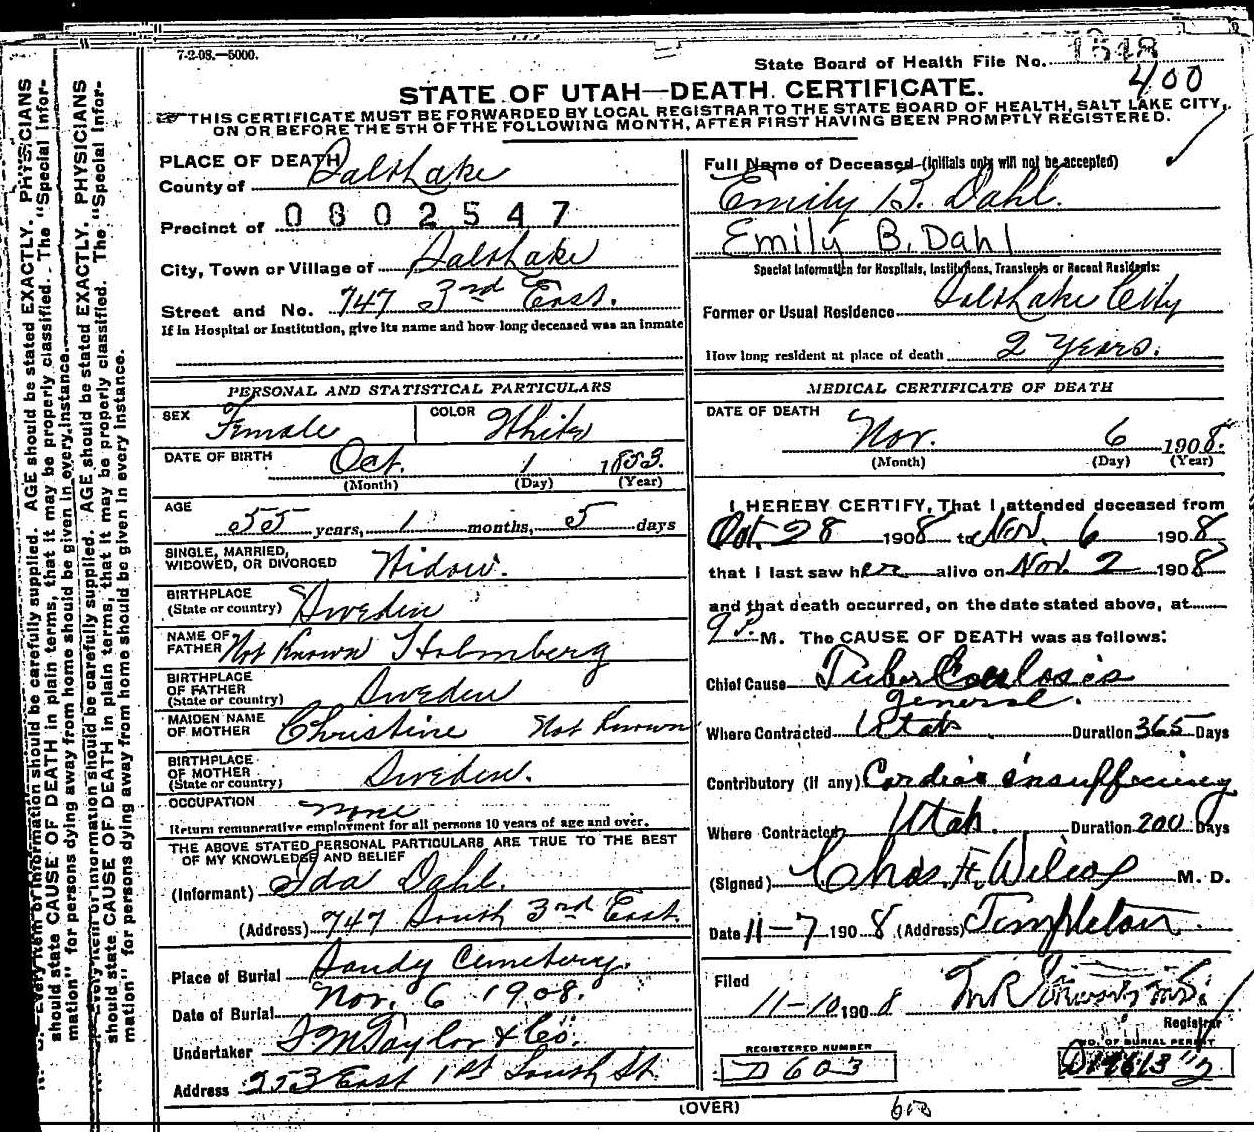 7-2-08.—5000.
State Board of Health File No. 1518
400
STATE OF UTAH—DEATH CERTIFICATE.
THIS CERTIFICATE MUST BE FORWARDED BY LOCAL REGISTRAR TO THE STATE BOARD OF HEALTH, SALT LAKE CITY,
ON OR BEFORE THE 5TH OF THE FOLLOWING MONTH, AFTER FIRST HAVING BEEN PROMPTLY REGISTERED.
PLACE OF DEATH
County of Salt Lake
Precinct of 0602547
City, Town or Village of Salt Lake
Street and No. 747 3rd East.
If in Hospital or Institution, give its name and how long deceased was an inmate
Full Name of Deceased—(Initials only will not be accepted)
Emily B. Dahl.
Emily B. Dahl
Special Information for Hospitals, Institutions, Transients or Recent Residents:
Former or Usual Residence Salt Lake City
How long resident at place of death 2 Years.
PERSONAL AND STATISTICAL PARTICULARS
SEX Female COLOR White
DATE OF BIRTH Oct. 1 1853.
(Month) (Day) (Year)
AGE 55 years, 1 months, 5 days
SINGLE, MARRIED,
WIDOWED, OR DIVORCED Widow.
BIRTHPLACE
(State or country) Sweden
NAME OF
FATHER Not Known Holmberg
BIRTHPLACE
OF FATHER
(State or country) Sweden
MAIDEN NAME
OF MOTHER Christine Not Known
BIRTHPLACE
OF MOTHER
(State or country) Sweden.
OCCUPATION none
Return remunerative employment for all persons 10 years of age and over.
THE ABOVE STATED PERSONAL PARTICULARS ARE TRUE TO THE BEST
OF MY KNOWLEDGE AND BELIEF
(Informant) Ida Dahl.
(Address) 747 South 3rd East.
Place of Burial Sandy Cemetery.
Date of Burial Nov. 6 1908.
Undertaker S M Taylor & Co.
Address 253 East 1st South St.
MEDICAL CERTIFICATE OF DEATH
DATE OF DEATH Nov. 6 1908.
(Month) (Day) (Year)
I HEREBY CERTIFY, That I attended deceased from
Oct. 28 1908 to Nov. 6 1908
that I last saw her alive on Nov. 2 1908
and that death occurred, on the date stated above, at
9 P. M. The CAUSE OF DEATH was as follows:
Chief Cause Tuberculosis
general.
Where Contracted Utah Duration 365 Days
Contributory (if any) Cardiac insufficiency
Where Contracted Utah. Duration 200 Days
(Signed) Chas. F. Wilcox M. D.
Date 11-7 1908 (Address) Templeton
Filed
11-10 1908 M.D.
Registrar
REGISTERED NUMBER
D603
NO. OF BURIAL PERMIT
(OVER)
should be carefully supplied. AGE should be stated EXACTLY. PHYSICIANS
should state CAUSE OF DEATH in plain terms, that it may be properly classified. The "Special Infor-
mation" for persons dying away from home should be given in every instance.
Every item of information should be carefully supplied. AGE should be stated EXACTLY. PHYSICIANS
should state CAUSE OF DEATH in plain terms, that it may be properly classified. The "Special Infor-
mation" for persons dying away from home should be given in every instance.